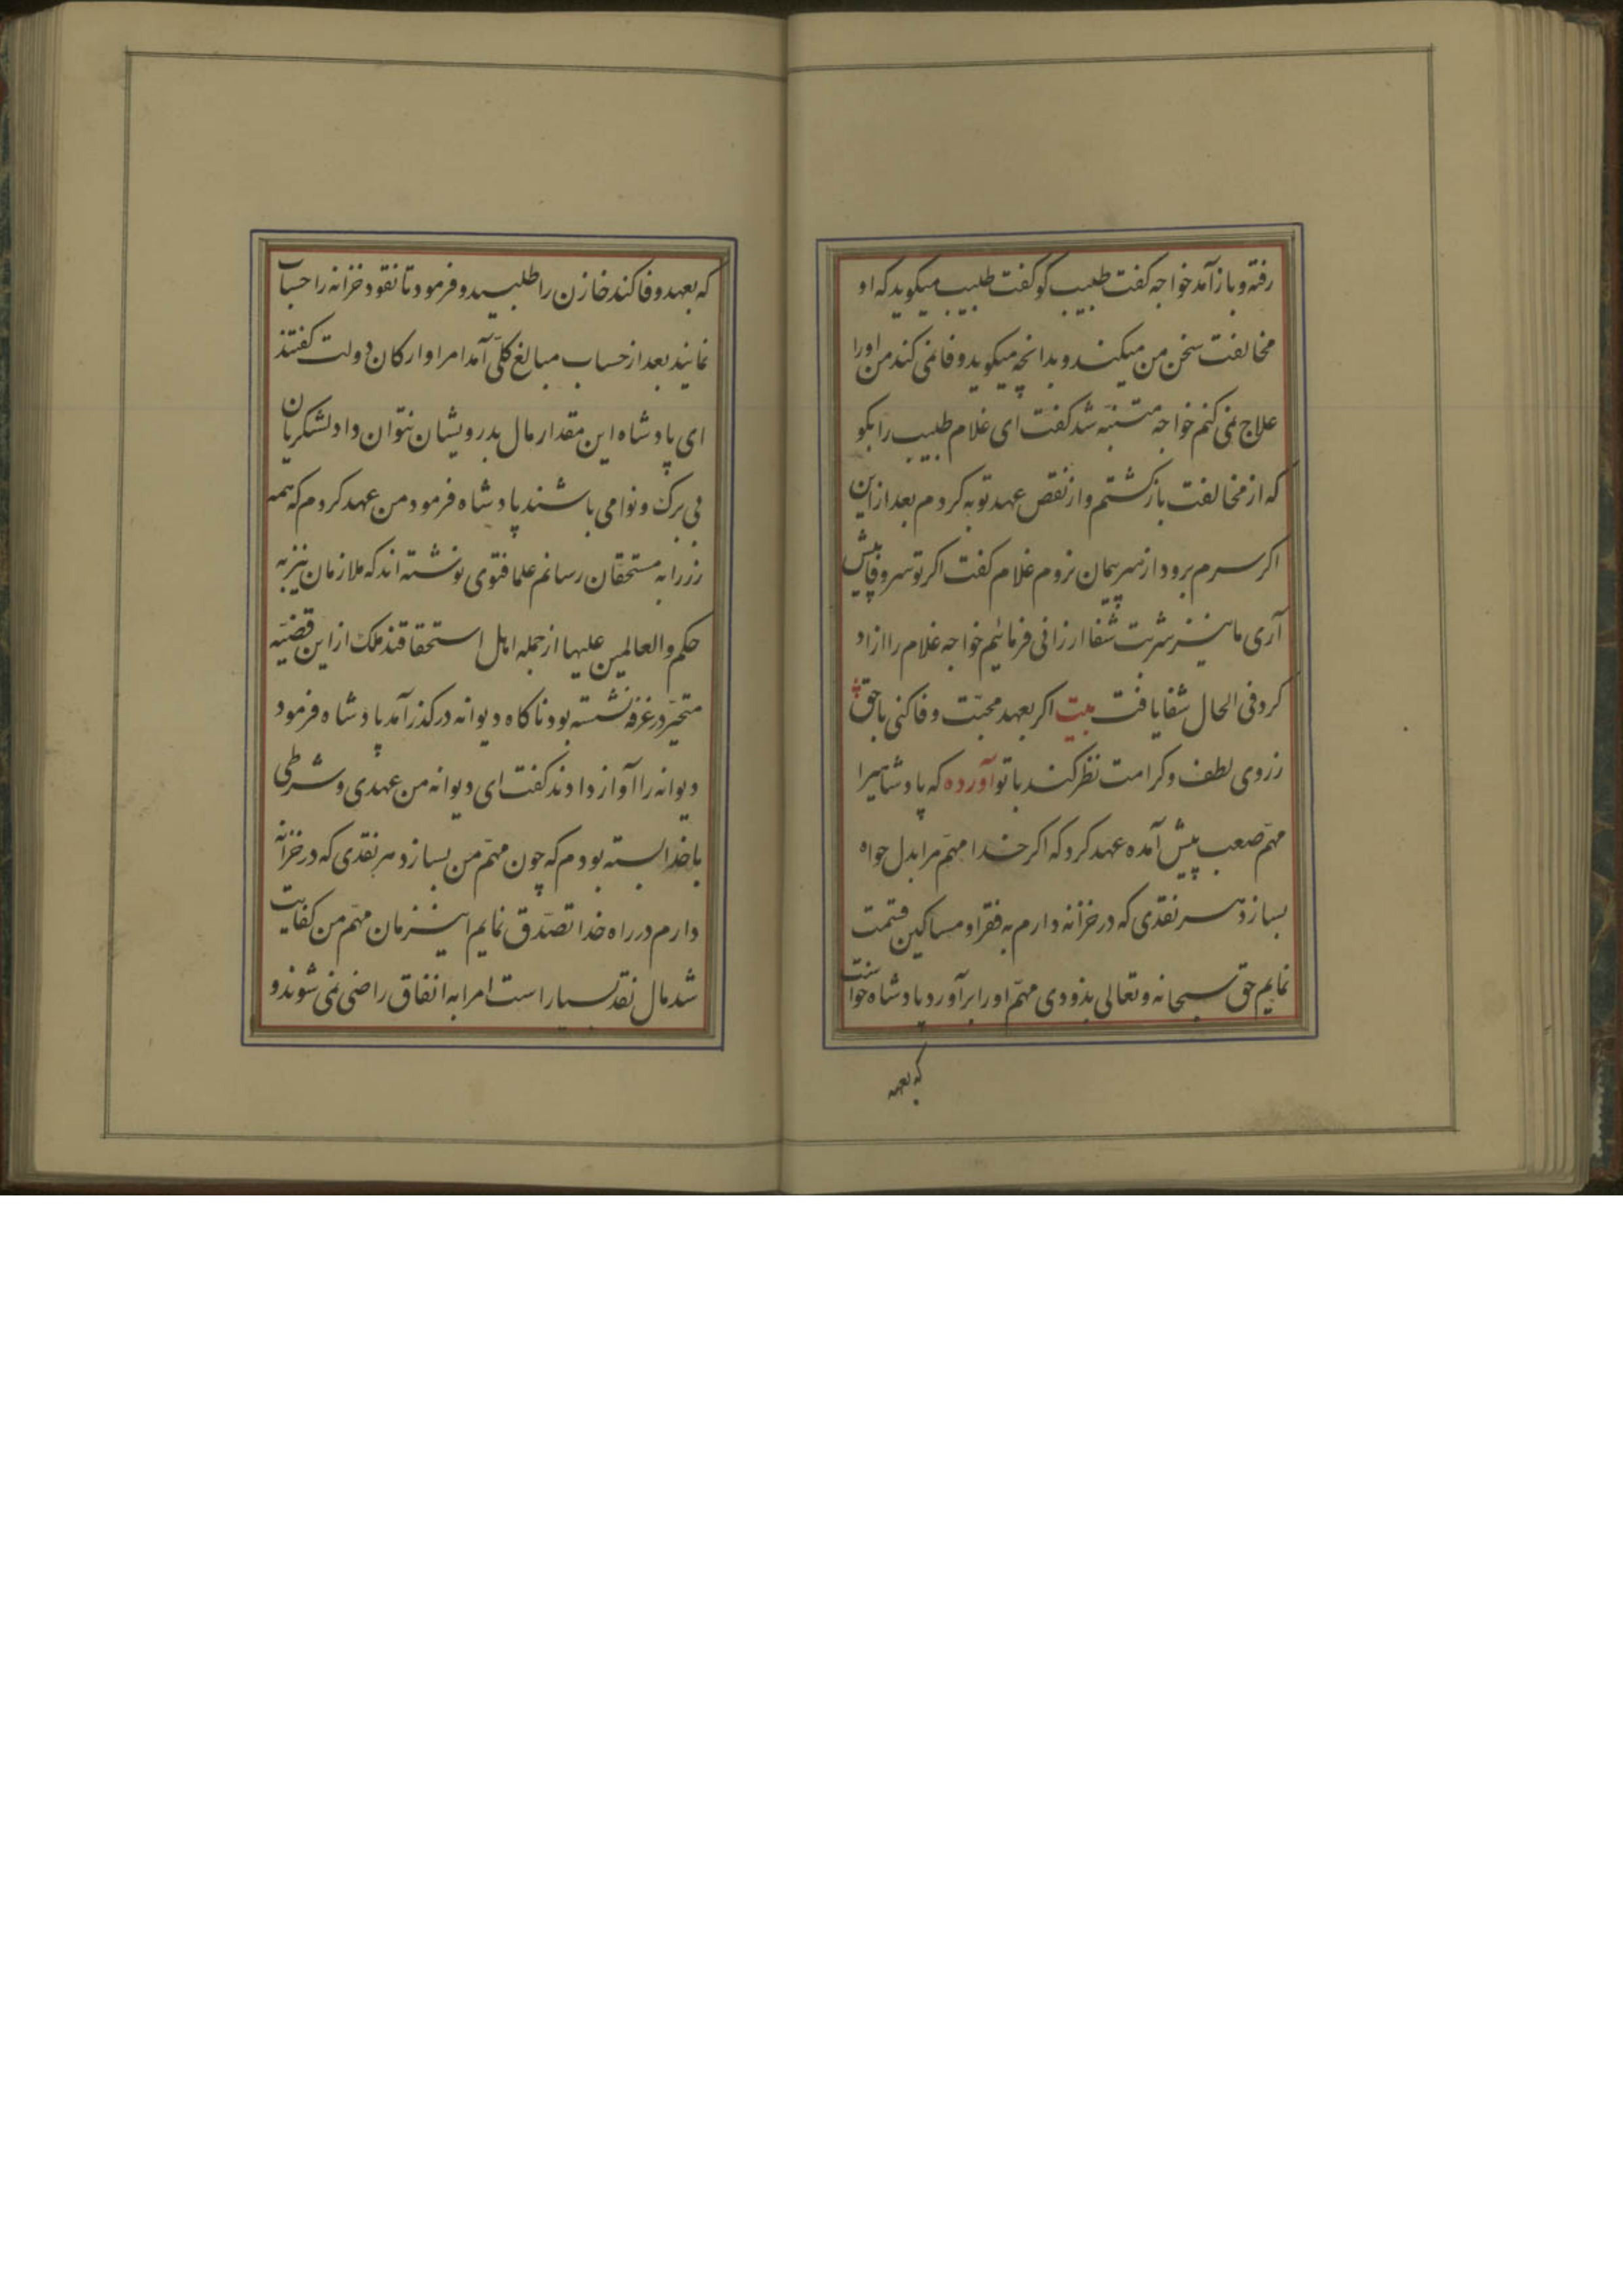 رفته و باز آمد خواجه کفت طبیب کو کفت طبیب میکوید که او
مخالفت سخن من میکند و بدانچه میکوید وفا نمی کند من اورا
علاج نمی کنم خواجه متنبّه شد کفت ای غلام طبیب را بکو
که از مخالفت باز کشتم و از نقص عهد توبه کردم بعد ازین
اکر سرم برود از سر پیمان نروم غلام کفت اکر تو سر وفا پیش
آری ما نیز شربت شفا ارزانی فرمائیم خواجه غلام را ازاد
کرد فی الحال شفا یافت بیت اکر بعهد محبّت وفا کنی با حق
ز روی لطف و کرامت نظر کند با تو آورده که پادشاهیرا
مهمّ صعب پیش آمده عهد کرد که اکر خدا مهمّ مرا بدل خواه
بسازد هر نقدی که در خزانه دارم به فقرا و مساکین قسمت
نمایم حق سبحانه و تعالی بزودی مهمّ اورا برآورد پادشاه خواست
که بعهد
که بعهد وفا کند خازن را طلبید و فرمود تا نقود خزانه را حساب
نمایند بعد از حساب مبالغ کلّی آمد امرا و ارکان دولت کفتند
ای پادشاه این مقدار مال بدرویشان نتوان داد لشکریان
بی برک و نوا می باشند پادشاه فرمود من عهد کردم که همه
زر را به مستحقان رسانم علما فتوی نوشته اند که ملازمان نیز به
حکم والعالمین علیها از جمله اهل استحقاقند ملک از این قضیّه
متحیّر در غرفه نشسته بود ناکاه دیوانه در کذر آمد پادشاه فرمود
دیوانه را آواز دادند کفت ای دیوانه من عهدی و شرطی
با خدا بسته بودم که چون مهمّ من بسازد هر نقدی که در خزانه
دارم در راه خدا تصدّق نمایم این زمان مهمّ من کفایت
شد مال نقد بسیار است امرا به انفاق راضی نمی شوند و